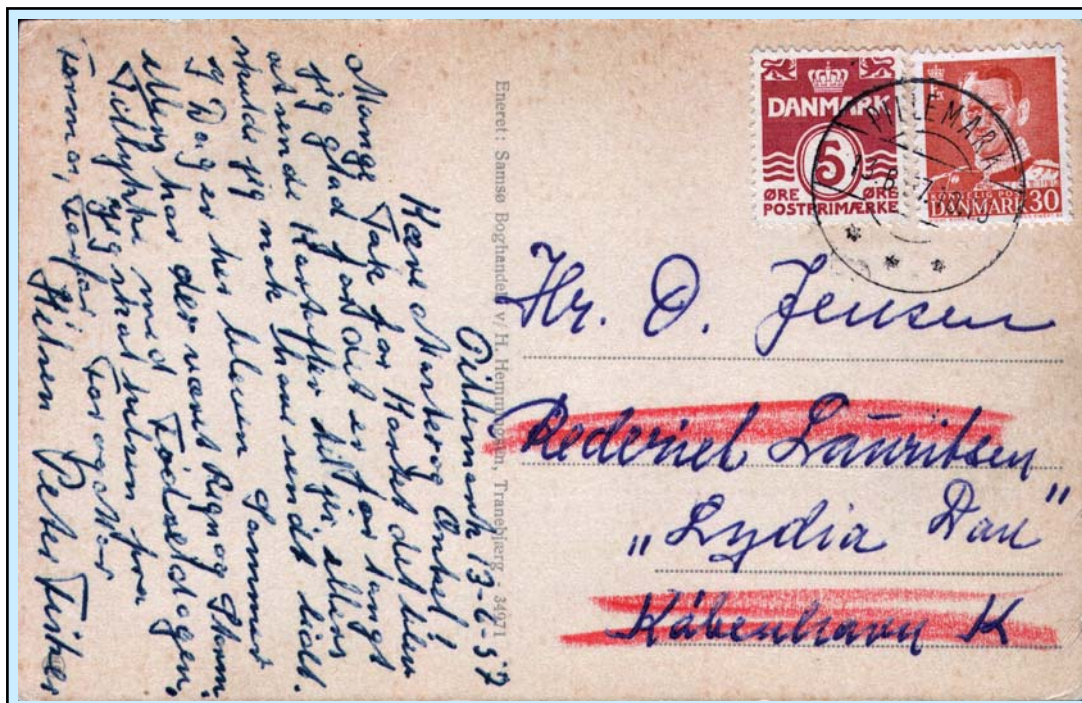 DANMARK
5
ØRE ØRE
POSTPRIMÆRKE
KONGELIG POST
DANMARK 30
PILLEMARK
Hr. O. Jensen
Rederiet Lauritsen
"Lydia Dan"
København K
Eneret: Samsø Boghandel v/ H. Hemmingsen, Tranebjærg - 34971
Pillemark 13-6-57
Kære Marta og Onkel!
Mange Tak for Kortet det blev
jeg glad for det er for langt
at sende Kartofler til jer ellers
skulde jeg nok have sendt lidt.
I Dag er her bleven Sommer
ellers har der været Regn og Storm.
Tillykke med Fødselsdagen.
Jeg skal hilsen fra
Farmor, Farfar Far og Mor
Hilsen Peter Fisker